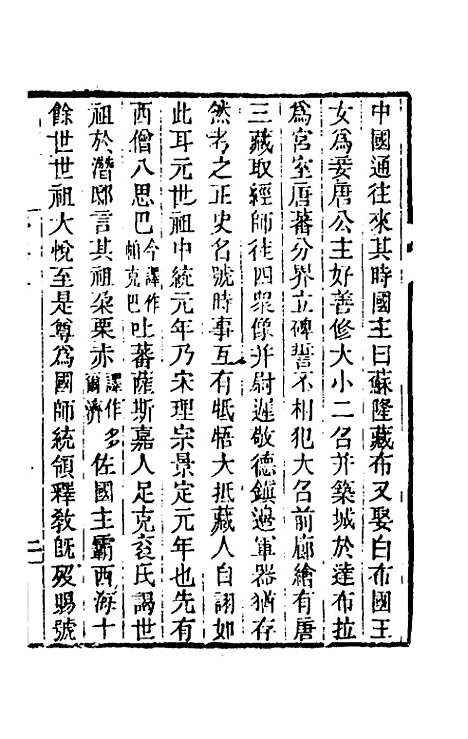 中國通往來其時國主曰蘇隆藏布又娶白布國王
女爲妾唐公主好善修大小二召并築城於達布拉
爲宮室唐蕃分界立碑誓不相犯大召前廊繪有唐
三藏取經師徒四衆像并尉遲敬德鎮邊軍器猶存
然考之正史名號時事互有牴牾大抵藏人自詡如
此耳元世祖中統元年乃宋理宗景定元年也先有
西僧八思巴今譯作帕克巴吐蕃薩斯嘉人足克袞氏謁世
祖於潛邸言其祖朶栗赤譯作多爾濟佐國主霸西海十
餘世世祖大悅至是尊爲國師統領釋敎旣歿賜號